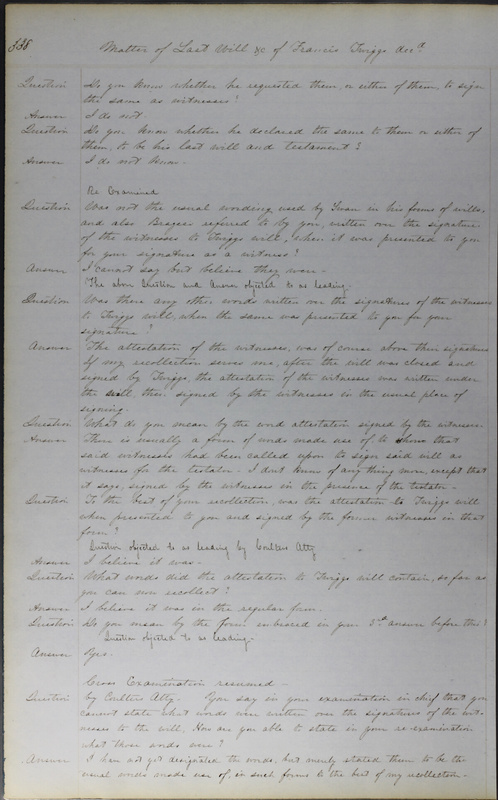 338 Matter of Last Will &c of Francis Twiggs decd
Question Do you know whether he requested them, or either of them, to sign
the same as witnesses?
Answer I do not.
Question Do you know whether he declared the same to them or either of
them, to be his last will and testament?
Answer I do not know -
Re Examined
Question Was not the usual wording used by Swan in his forms of wills,
and also Bragees referred to by you, written over the signature
of the witnesses to Twiggs will, when it was presented to you
for your signature as a witness?
Answer I cannot say but believe they were -
The above Question and Answer objected to as leading -
Question Was there any other words written over the signatures of the witnesses
to Twiggs will, when the same was presented to you for your
signature?
Answer The attestation of the witnesses, was of course above their signatures
If my recollection serves me, after the will was closed and
signed by Twiggs, the attestation of the witnesses was written under
the will, then signed by the witnesses in the usual place of
signing.
Question What do you mean by the word attestation signed by the witnesses
Answer There is usually a form of words made use of to show that
said witnesses had been called upon to sign said will as
witnesses for the testator - I dont know of any thing more, except that
it says, signed by the witnesses in the presence of the testator -
Question To the best of your recollection, was the attestation to Twiggs will
when presented to you and signed by the former witnesses in that
form?
Question objected to as leading by Coulters Atty
Answer I believe it was -
Question What words did the attestation to Twiggs will contain, so far as
you can now recollect?
Answer I believe it was in the regular form.
Question Do you mean by the form embraced in your 3d answer before this?
Question objected to as leading -
Answer Yes.
Cross Examination resumed -
Question by Coulters Atty. You say in your examination in chief that you
cannot state what words were written over the signatures of the wit-
nesses to the will, How are you able to state in your re-examination
what those words were?
Answer I have not yet designated the words, but merely stated them to be the
usual words made use of, in such forms to the best of my recollection -